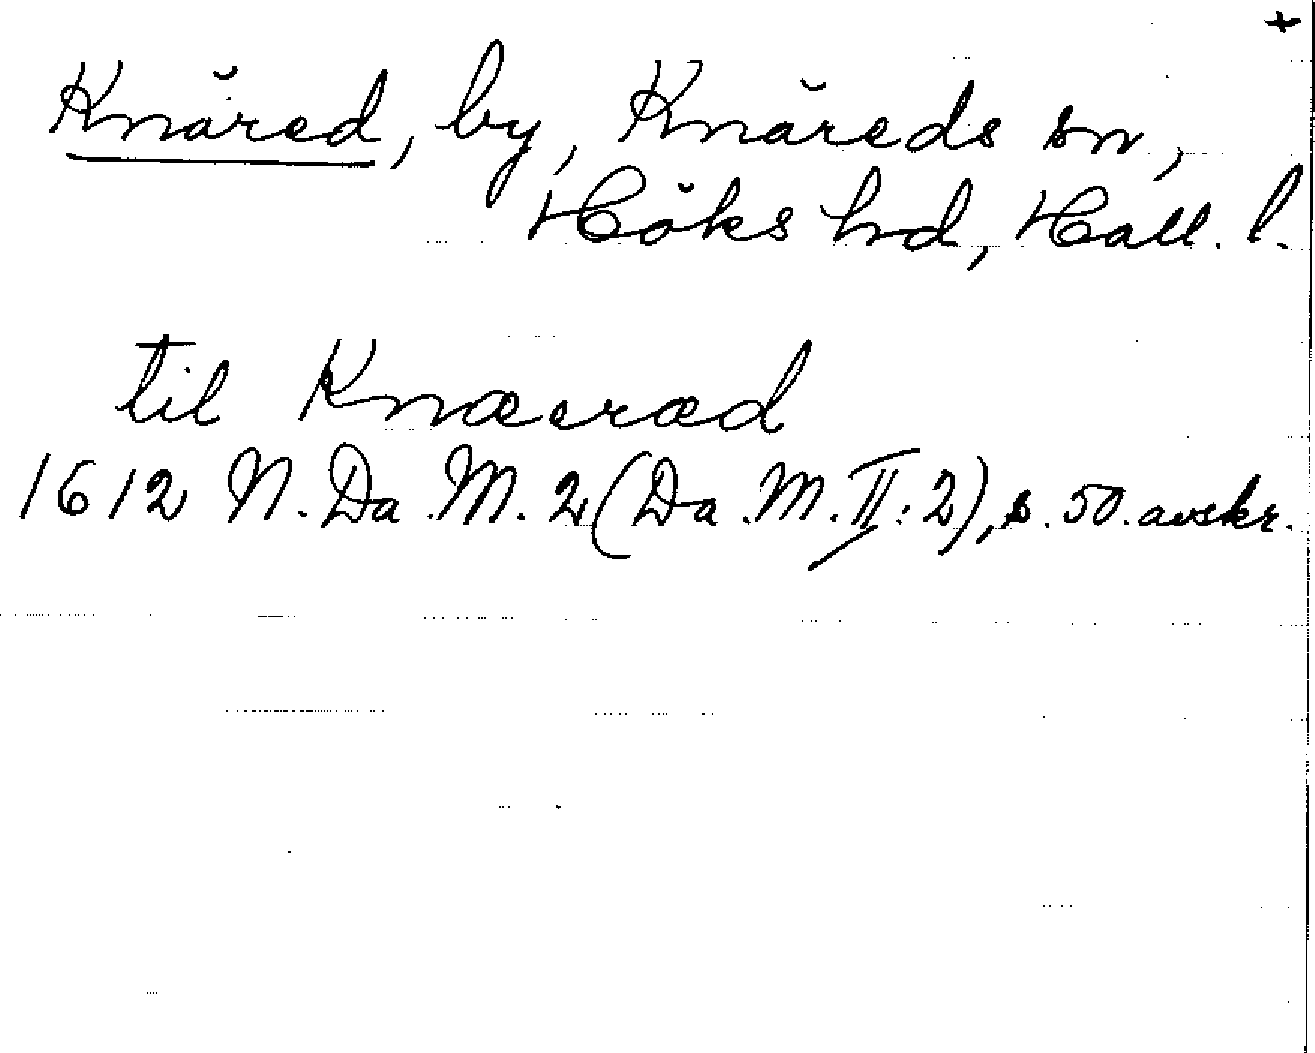 +
Knäred, by, Knäreds sn,
Höks hd, Hall. l.
til Knæeræd
1612 N. Da. M. 2 (Da. M. II: 2), s. 50. avskr.